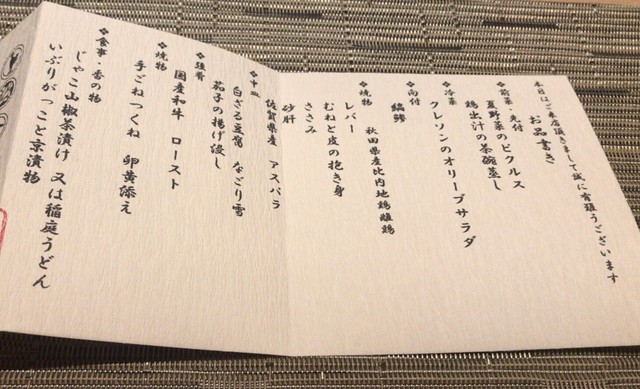 本日はご来店頂きまして誠に有難うございます
お品書き
❖前菜・先付
夏野菜のピクルス
鶏出汁の茶碗蒸し
❖冷菜
クレソンのオリーブサラダ
❖向付
縞鯵
❖焼物
秋田県産比内地鶏雌鶏
レバー
むねと皮の抱き身
ささみ
砂肝
佐賀県産 アスパラ
❖中皿
白ざる豆腐 なごり雪
茄子の揚げ浸し
❖強肴
国産和牛 ロースト
❖焼物
手ごねつくね 卵黄添え
❖食事・香の物
じゃこ山椒茶漬け 又は稲庭うどん
いぶりがっこと京漬物